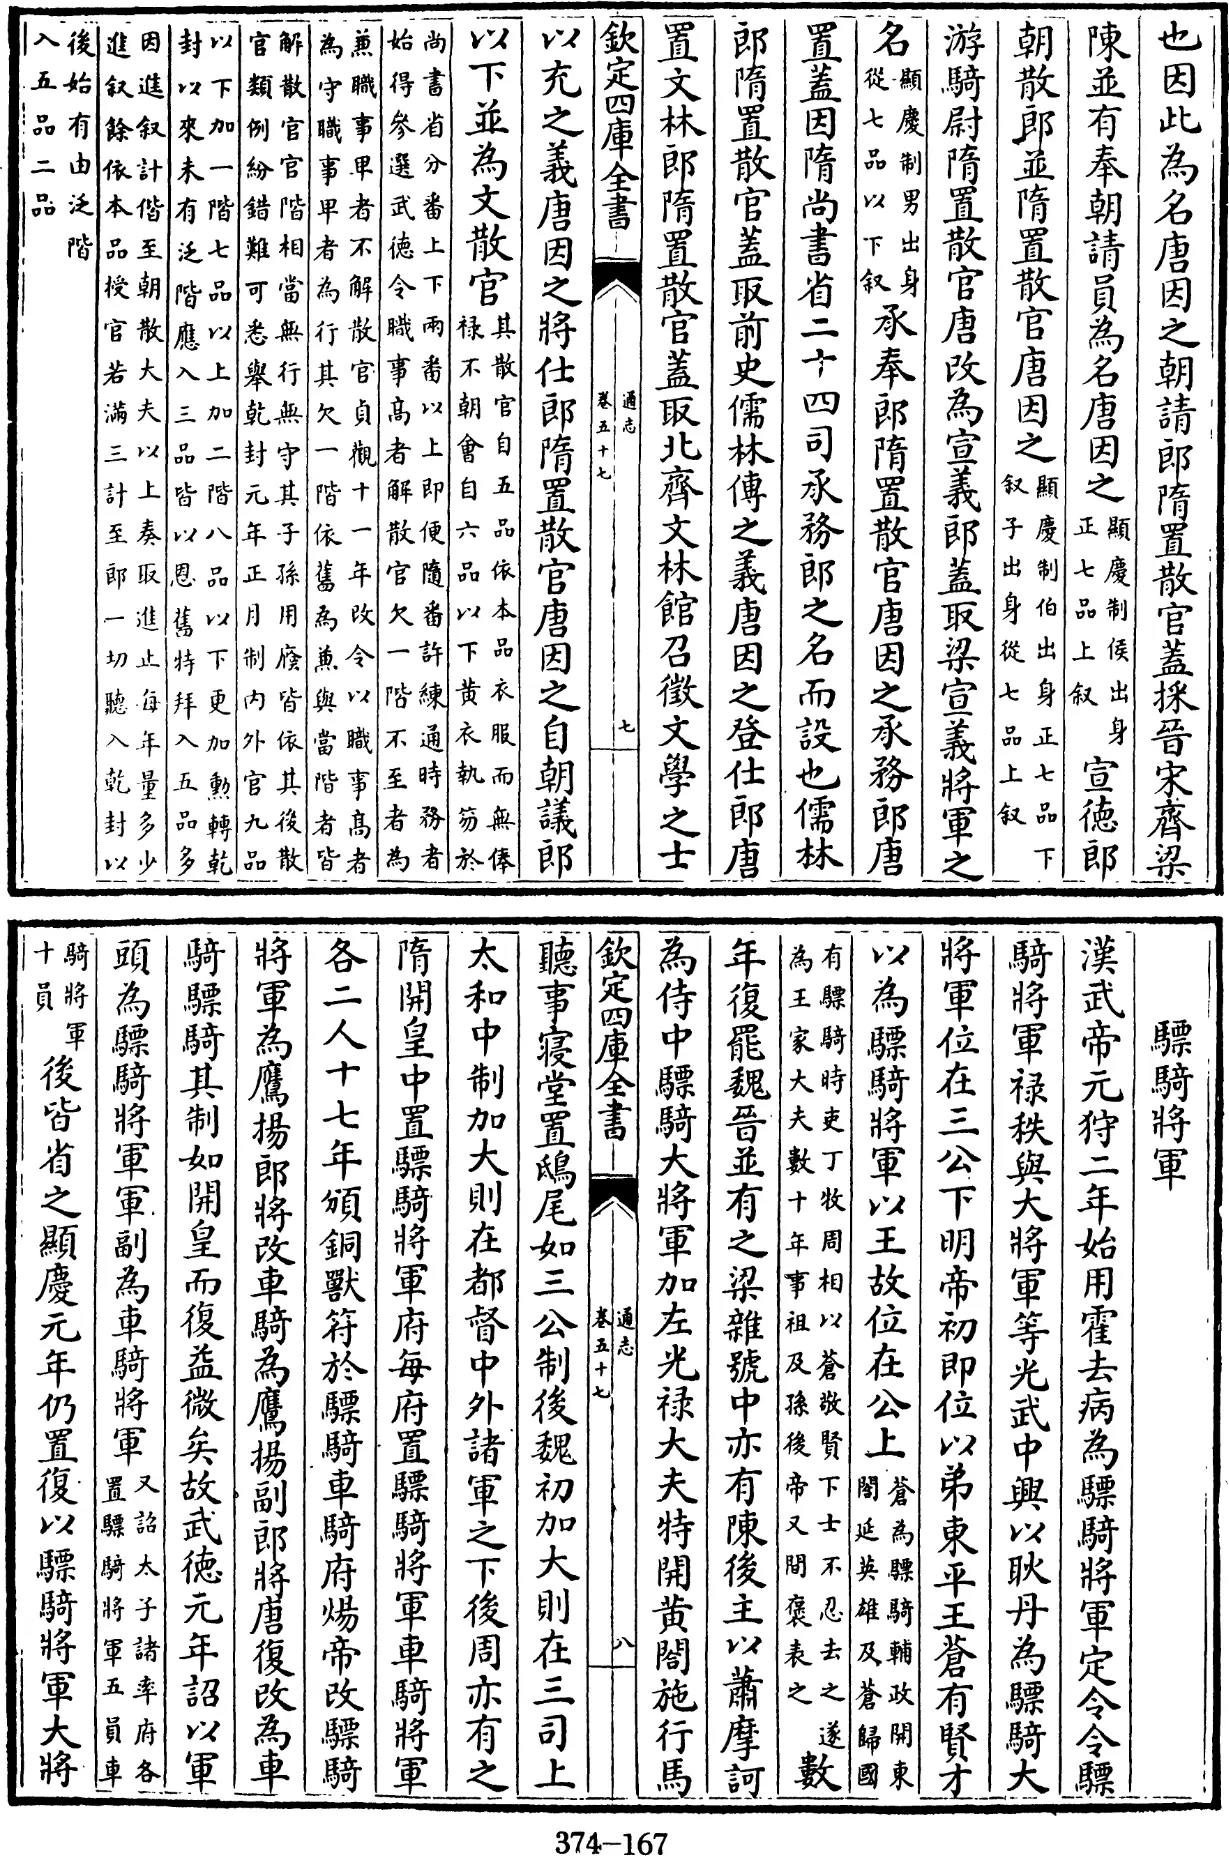 也因此為名唐因之朝請郎隋置散官蓋採晉宋齊梁
陳並有奉朝請員為名唐因之顯慶制侯出身正七品上叙宣徳郎
朝散郎並隋置散官唐因之顯慶制伯出身正七品下叙子出身從七品上叙
游騎尉隋置散官唐改為宣義郎蓋取梁宣義將軍之
名顯慶制男出身從七品以下叙承奉郎隋置散官唐因之承務郎唐
置蓋因隋尚書省二十四司承務郎之名而設也儒林
郎隋置散官蓋取前史儒林傳之義唐因之登仕郎唐
置文林郎隋置散官蓋取北齊文林館召徵文學之士
欽定四庫全書
通志
卷五十七
七
以充之義唐因之將仕郎隋置散官唐因之自朝議郎
以下並為文散官其散官自五品依本品衣服而無俸禄不朝會自六品以下黄衣執笏於
尚書省分番上下兩番以上即便隨番許練通時務者始得參選武徳令職事髙者解散官欠一階不至者為
兼職事卑者不解散官貞觀十一年改令以職事髙者為守職事卑者為行其欠一階依舊為兼與當階者皆
解散官官階相當無行無守其子孫用廕皆依其後散官類例紛錯難可悉舉乾封元年正月制内外官九品
以下加一階七品以上加二階八品以下更加勲轉乾封以來未有泛階應入三品皆以恩舊特拜入五品多
因進叙計偕至朝散大夫以上奏取進止每年量多少進叙餘依本品授官若滿三計至郎一切聽入乾封以
後始有由泛階入五品二品
驃騎將軍
漢武帝元狩二年始用霍去病為驃騎將軍定令令驃
騎將軍禄秩與大將軍等光武中興以耿丹為驃騎大
將軍位在三公下明帝初即位以弟東平王蒼有賢才
以為驃騎將軍以王故位在公上蒼為驃騎輔政開東閤延英雄及蒼歸國
有驃騎時吏丁牧周相以蒼敬賢下士不忍去之遂為王家大夫數十年事祖及孫後帝又間褒表之數
年復罷魏晉並有之梁雜號中亦有陳後主以蕭摩訶
為侍中驃騎大將軍加左光禄大夫特開黄閤施行馬
欽定四庫全書
通志
卷五十七
八
聽事寢堂置鴟尾如三公制後魏初加大則在三司上
太和中制加大則在都督中外諸軍之下後周亦有之
隋開皇中置驃騎將軍府每府置驃騎將軍車騎將軍
各二人十七年頒銅獸符於驃騎車騎府煬帝改驃騎
將軍為鷹揚郎將改車騎為鷹揚副郎將唐復改為車
騎驃騎其制如開皇而復益微矣故武徳元年詔以軍
頭為驃騎將軍軍副為車騎將軍又詔太子諸率府各置驃騎將軍五員車
騎將軍十員後皆省之顯慶元年仍置復以驃騎將軍大將
374-167